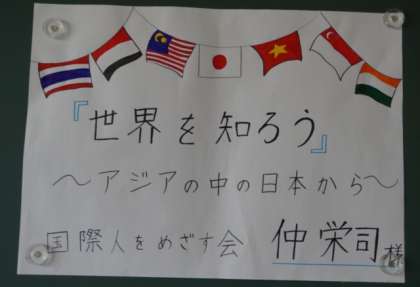 『世界を知ろう』
～アジアの中の日本から～
国際人をめざす会 仲栄司様